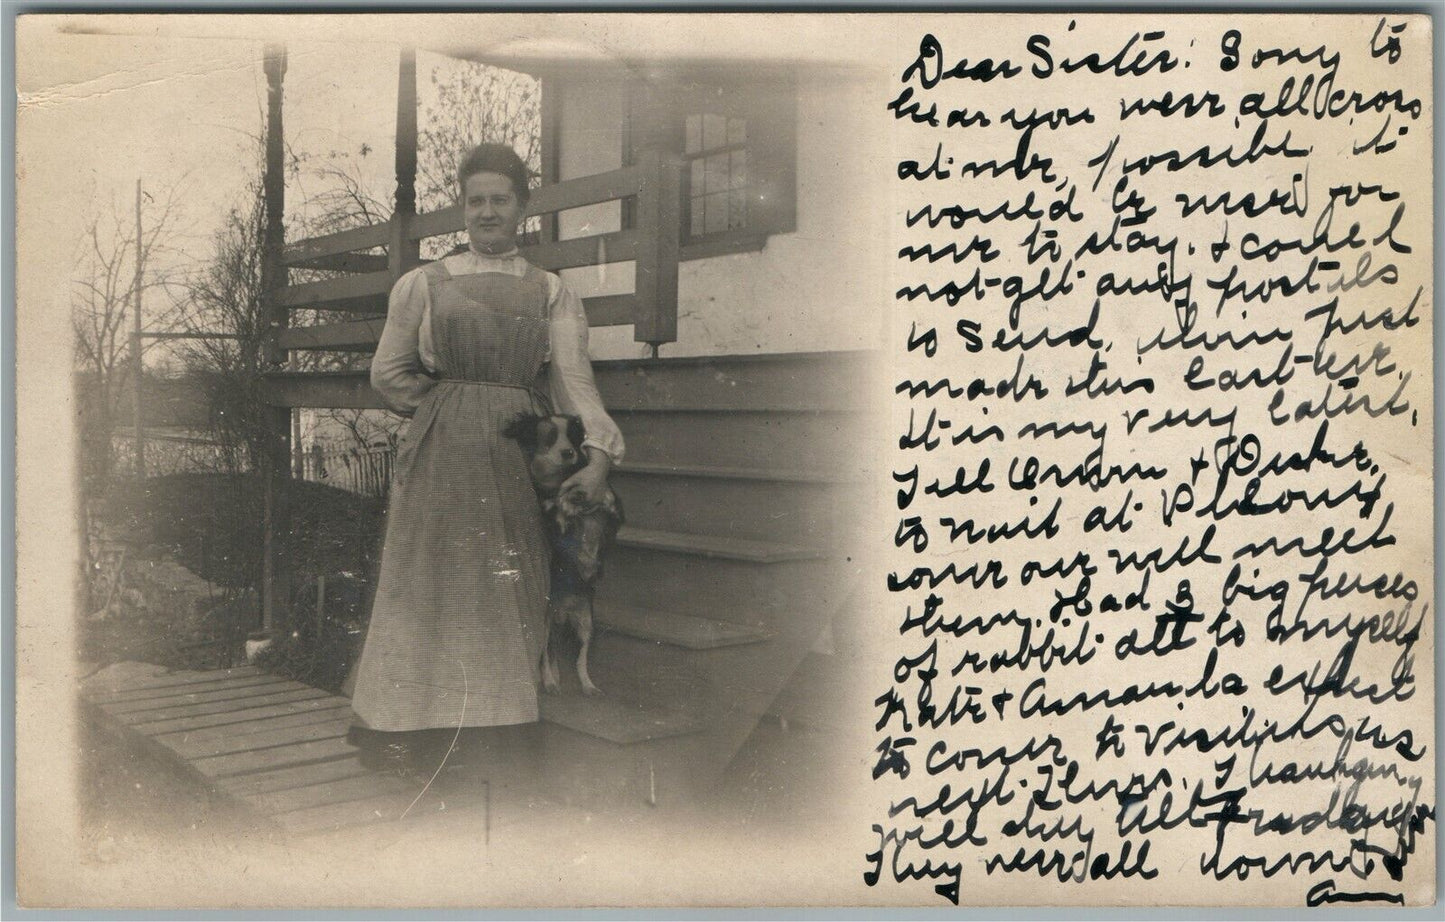 Dear Sister: Sorry to
hear you were all cross
at me, possible it
would be for
me to stay. & could
not get any postals
to send. just
made this last eve.
It is my very latest.
Tell &
to wait at
some one will meet
them. Had 3 big pieces
of rabbit all to myself
Kate & Amanda expect
to come to visit us
next Thurs.
will stay till Friday
They were all down